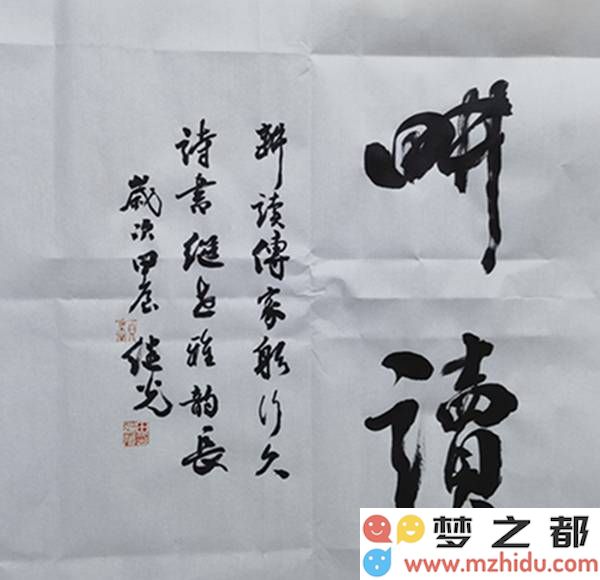 畊讀
耕讀傳家躬行久
詩書継世雅韵長
歲次甲辰
光
梦之都
www.mzhidu.com